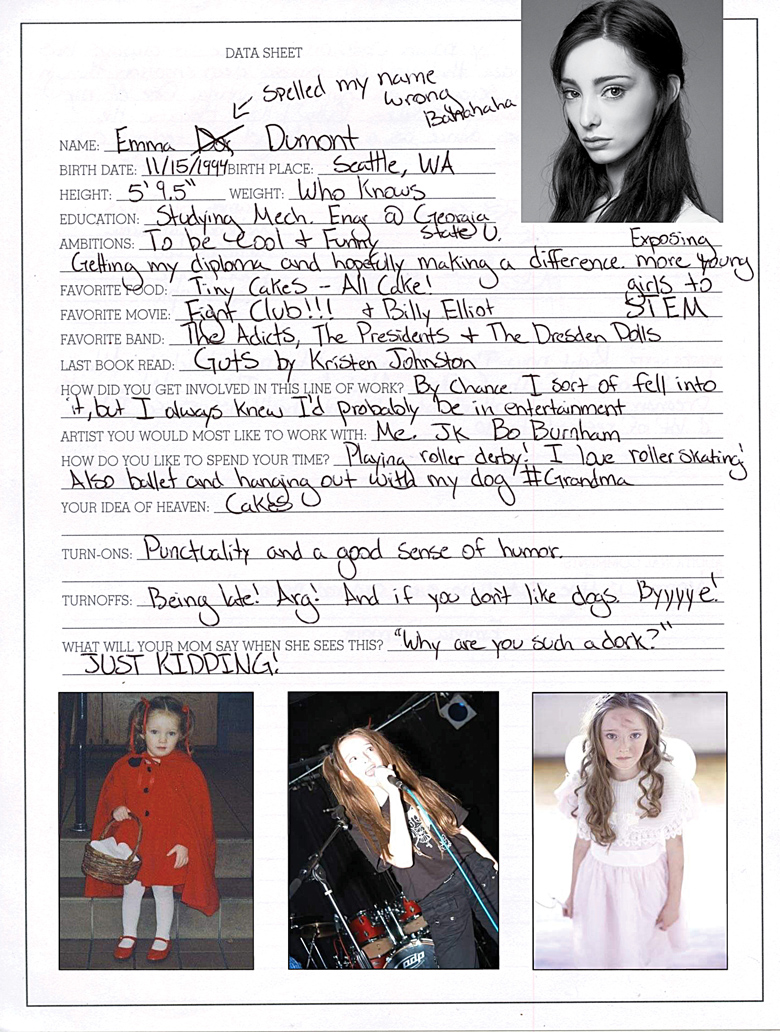 DATA SHEET
spelled my name
wrong
Bahahaha
NAME: Emma Dumont
BIRTH DATE: 11/15/1994 BIRTH PLACE: Seattle, WA
HEIGHT: 5' 9.5" WEIGHT: Who Knows
EDUCATION: Studying Mech. Engr @ Georgia
State U.
AMBITIONS: To be Cool + Funny
Exposing
Getting my diploma and hopefully making a difference. more young
FAVORITE FOOD: Tiny Cakes - All Cake! girls to
FAVORITE MOVIE: Fight Club!!! + Billy Elliot STEM
FAVORITE BAND: The Adicts, The Presidents + The Dresden Dolls
LAST BOOK READ: Guts by Kristen Johnston
HOW DID YOU GET INVOLVED IN THIS LINE OF WORK? By Chance. I sort of fell into
it, but I always knew I'd probably be in entertainment
ARTIST YOU WOULD MOST LIKE TO WORK WITH: Me. JK Bo Burnham
HOW DO YOU LIKE TO SPEND YOUR TIME? Playing roller derby! I love roller skating!
Also ballet and hanging out with my dog #Grandma
YOUR IDEA OF HEAVEN: Cakes
TURN-ONS: Punctuality and a good sense of humor.
TURNOFFS: Being late! Arg! And if you don't like dogs. Byyyye!
WHAT WILL YOUR MOM SAY WHEN SHE SEES THIS? "Why are you such a dork?"
JUST KIDDING!
pdp